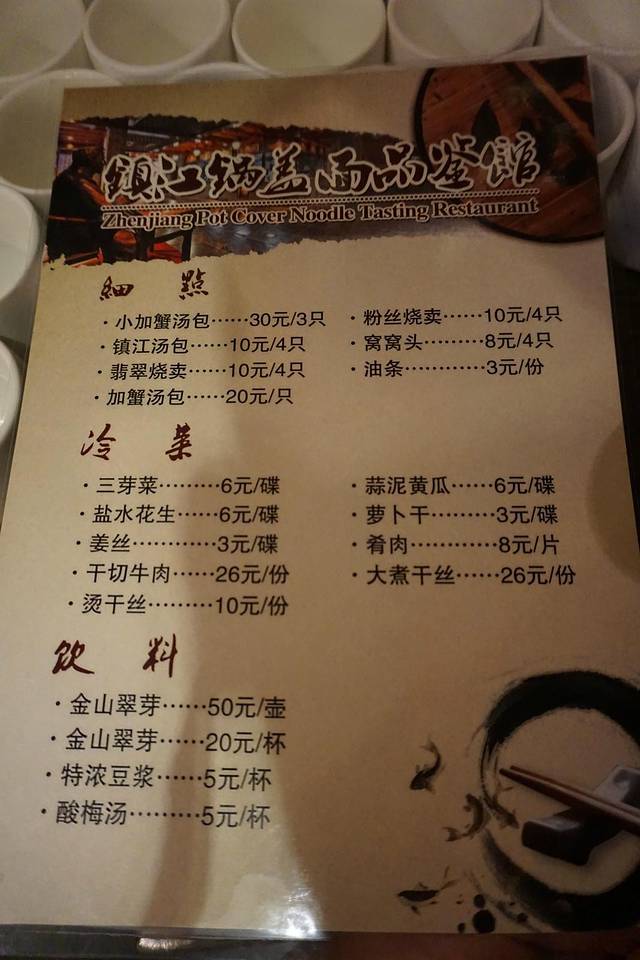 鎮江锅盖面品鉴館
Zhenjiang Pot Cover Noodle Tasting Restaurant
細點
·小加蟹汤包……30元/3只
·镇江汤包……10元/4只
·翡翠烧卖……10元/4只
·加蟹汤包……20元/只
·粉丝烧卖……10元/4只
·窝窝头………8元/4只
·油条…………3元/份
冷菜
·三芽菜………6元/碟
·盐水花生……6元/碟
·姜丝…………3元/碟
·干切牛肉……26元/份
·烫干丝………10元/份
·蒜泥黄瓜……6元/碟
·萝卜干………3元/碟
·肴肉…………8元/片
·大煮干丝……26元/份
饮料
·金山翠芽……50元/壶
·金山翠芽……20元/杯
·特浓豆浆……5元/杯
·酸梅汤………5元/杯